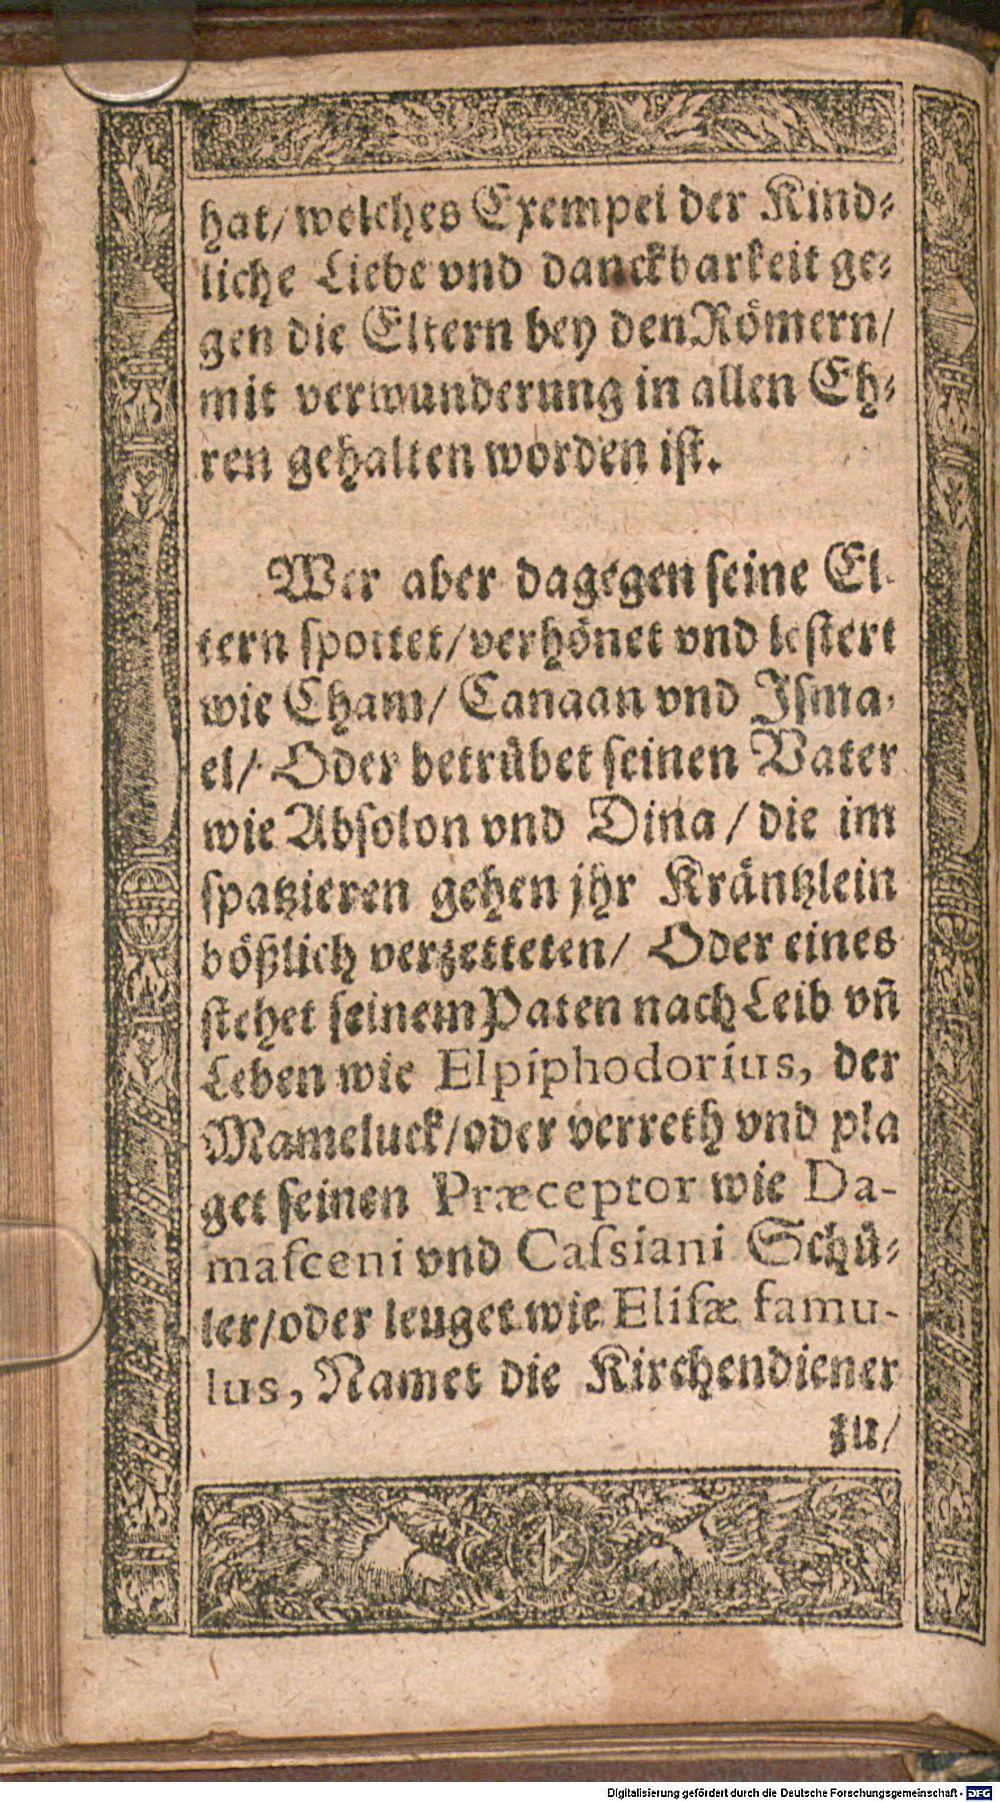 hat/ welches Exempel der Kind⸗
liche Liebe vnd danckbarkeit ge⸗
gen die Eltern bey den Römern/
mit verwunderung in allen Eh⸗
ren gehalten worden ist.
Wer aber dagegen seine El⸗
tern spottet/ verhönet vnd lestert
wie Cham/ Canaan vnd Isma⸗
el/ Oder betrübet seinen Vater
wie Absolon vnd Dina / die im
spatzieren gehen jhr Kräntzlein
bößlich verzetteten/ Oder eines
stehet seinem Paten nach Leib vñ
Leben wie Elpiphodorius, der
Mameluck/ oder verreth vnd pla
get seinen Præceptor wie Da-
masceni vnd Cassiani Schü⸗
ler/ oder leuget wie Elisæ famu-
lus, Namet die Kirchendiener
zu/
Digitalisierung gefördert durch die Deutsche Forschungsgemeinschaft - DFG